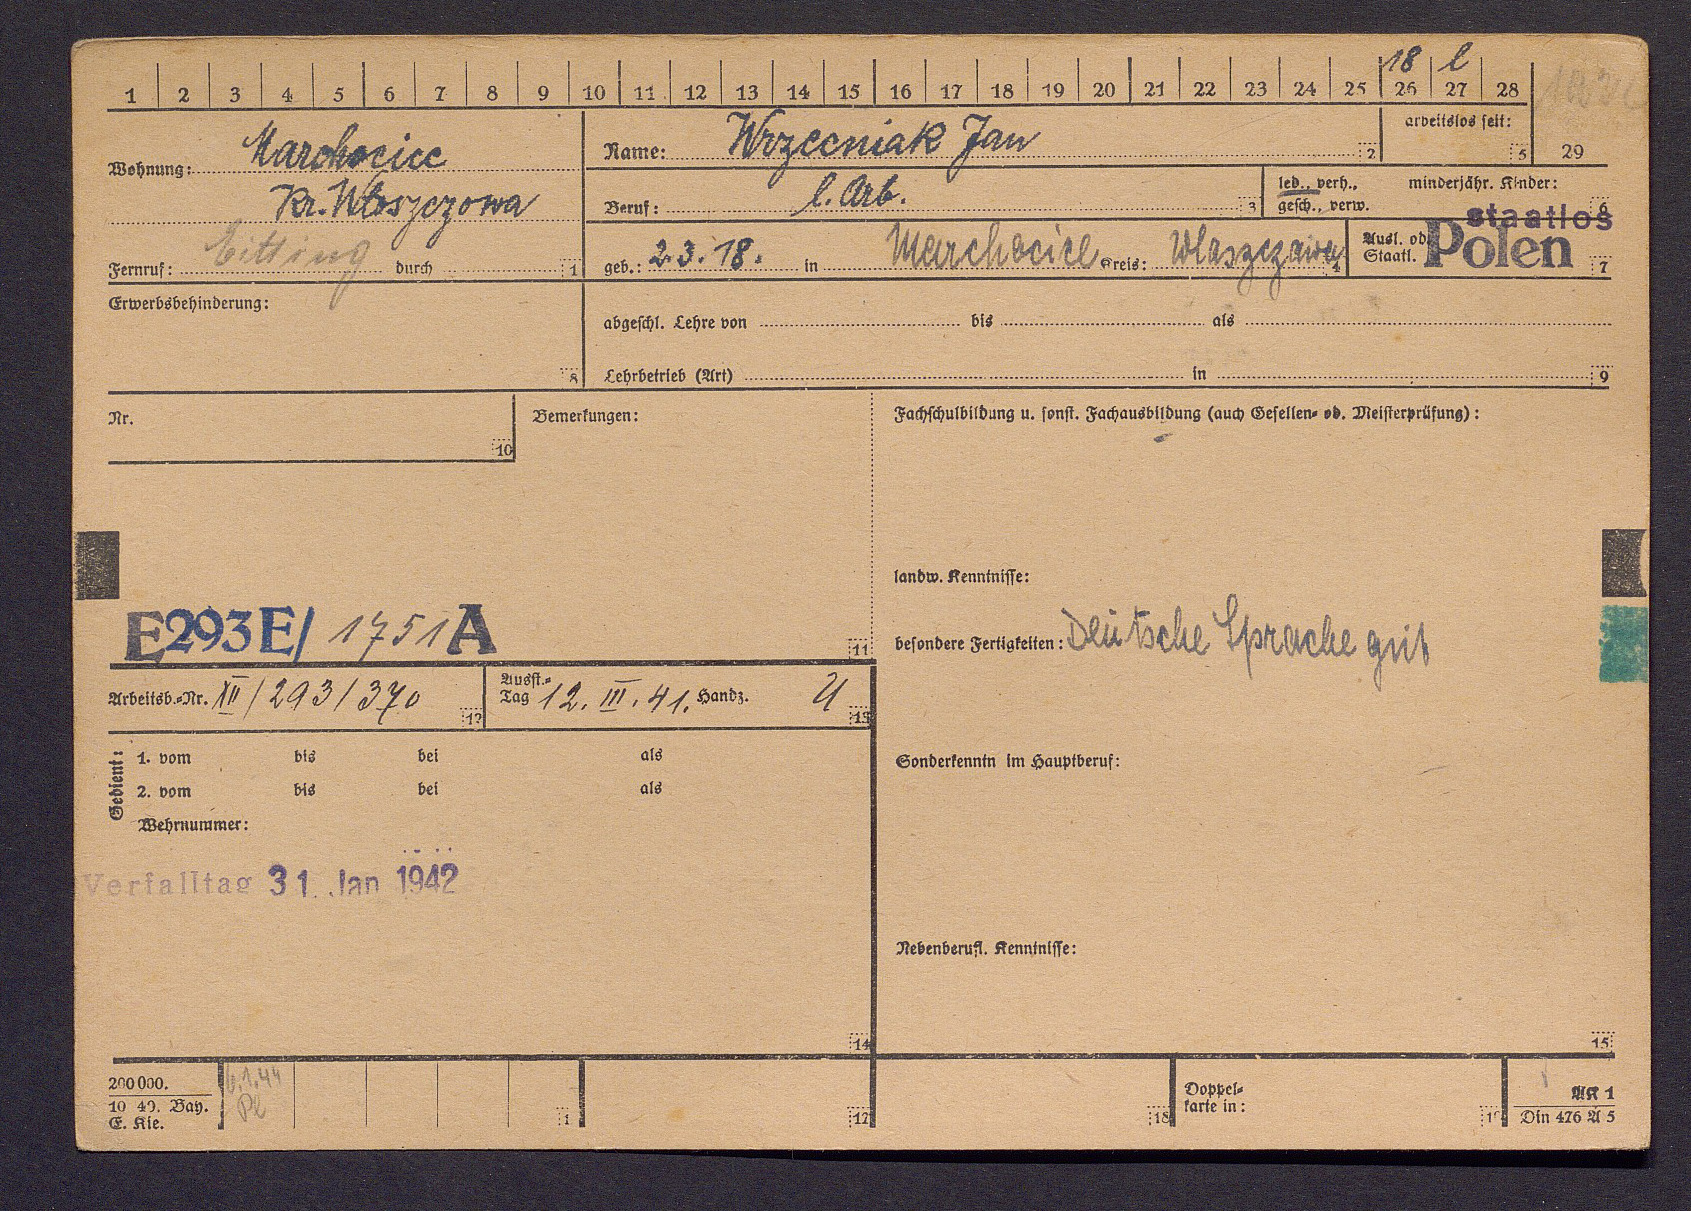 18 l
1 2 3 4 5 6 7 8 9 10 11 12 13 14 15 16 17 18 19 20 21 22 23 24 25 26 27 28
Wohnung: Marchocice
Kr. Włoszczowa
Eitting
Fernruf: durch 1
Name: Wrzecniak Jan 2
arbeitslos seit: 5 29
Beruf: l. Arb. 3
led., verh., minderjähr. Kinder:
gesch., verw. 6
geb.: 2.3.18. in Marchocice Kreis: Wlaszczawa 4
staatlos
Ausl. od.
Staatl. Polen 7
Erwerbsbehinderung: 8
abgeschl. Lehre von bis als
Lehrbetrieb (Art) in 9
Nr. 10
Bemerkungen:
Fachschulbildung u. sonst. Fachausbildung (auch Gesellen- od. Meisterprüfung):
landw. Kenntnisse:
E293E/ 1751 A 11
besondere Fertigkeiten: Deutsche Sprache gut
Arbeitsb.-Nr. XII/293/370 12
Ausst.-
Tag 12. III. 41. Handz. 13
Gedient: 1. vom bis bei als
2. vom bis bei als
Wehrnummer:
Sonderkenntn im Hauptberuf:
Verfalltag 31. Jan 1942
Nebenberufl. Kenntnisse:
14 15
200000.
10 40. Bay.
E. Kie.
6.1.44
1 17 18
Doppel-
karte in: 19
AK 1
Din 476 A 5